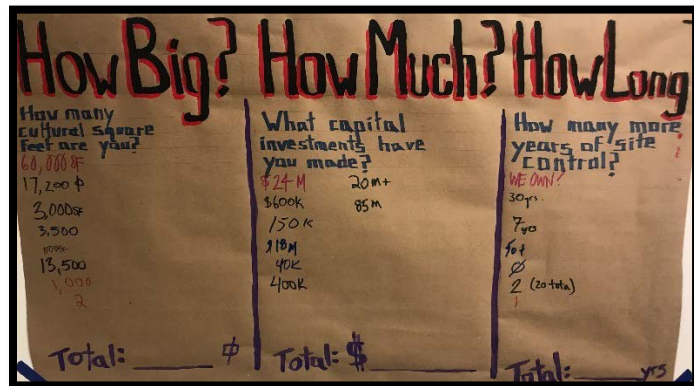 How Big?
How many
cultural square
feet are you?
60,000 SF
17,200
3,000 SF
3,500
13,500
1,000
2
Total: ______
How Much?
What capital
investments have
you made?
$24M 20M+
$600K 85M
150K
$18M
40K
400K
Total: $ ______
How Long
How many more
years of site
control?
WE OWN!
30 yrs.
7 yrs
50+
Ø
2 (20 total)
1
Total: ______ yrs